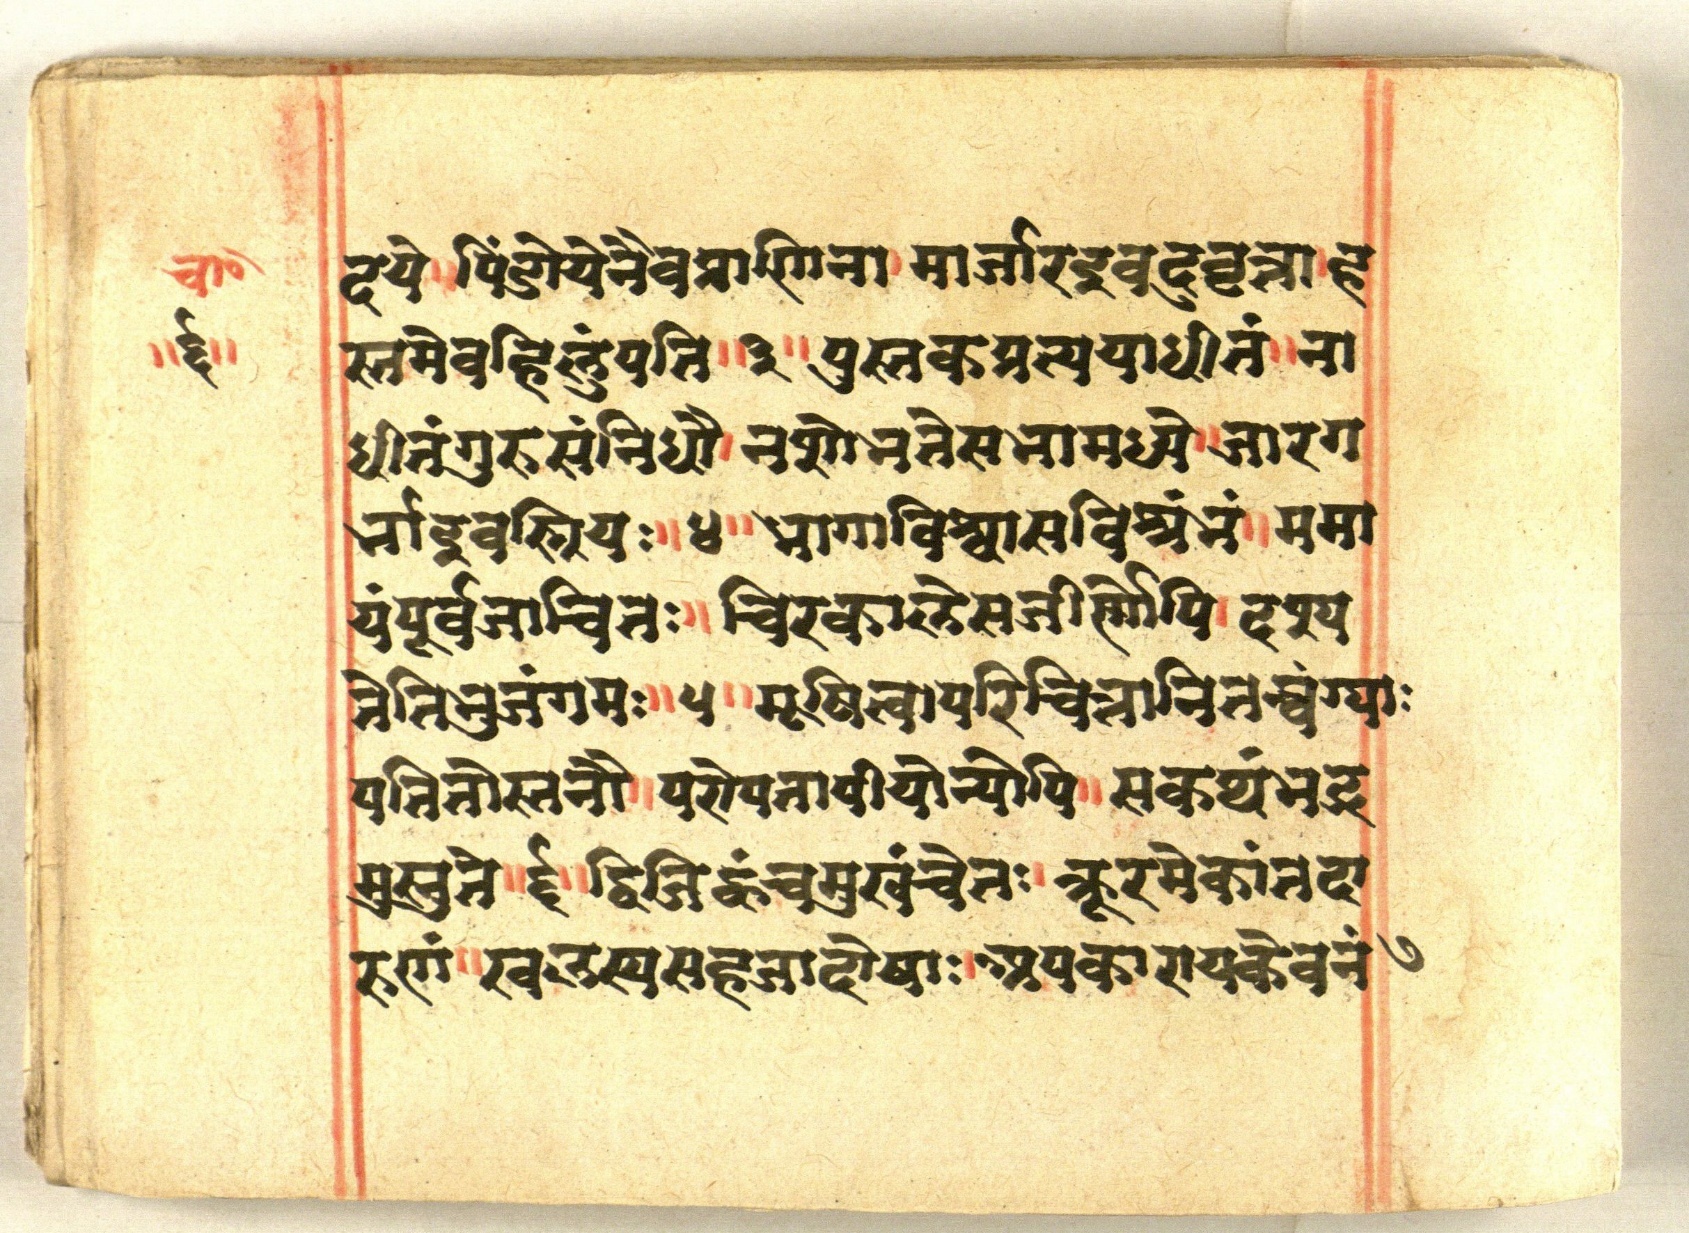 चा॰
॥६॥
दये ॥ पिंडोयेनैवप्राणिना । मार्जारइवदुवृत्ता । ह
स्तमेवहिलुंपति ॥ ३ ॥ पुस्तकप्रत्ययाधीतं ॥ ना
धीतंगुरुसंनिधौ । नशोभतेसभामध्ये । जारग
र्भाइवस्त्रियः ॥ ४ ॥ भागाविश्वासविश्रंभं ॥ ममा
यंपूर्वजाचितः ॥ चिरकालेसजीर्णोपि । दश्य
तेतिभुजंगमः ॥ ५ ॥ मृषित्वापरिचित्तानितन्वंग्याः
पतितोस्तनौ ॥ परोपतापीयोन्योपि ॥ सकथंभद्र
मुस्तुते ॥ ६ ॥ द्विजिह्वंचमुखंचेतः । क्रूरमेकांतदा
रुणं ॥ खलस्यसहजादोषाः । अपकारायकेवलं ७